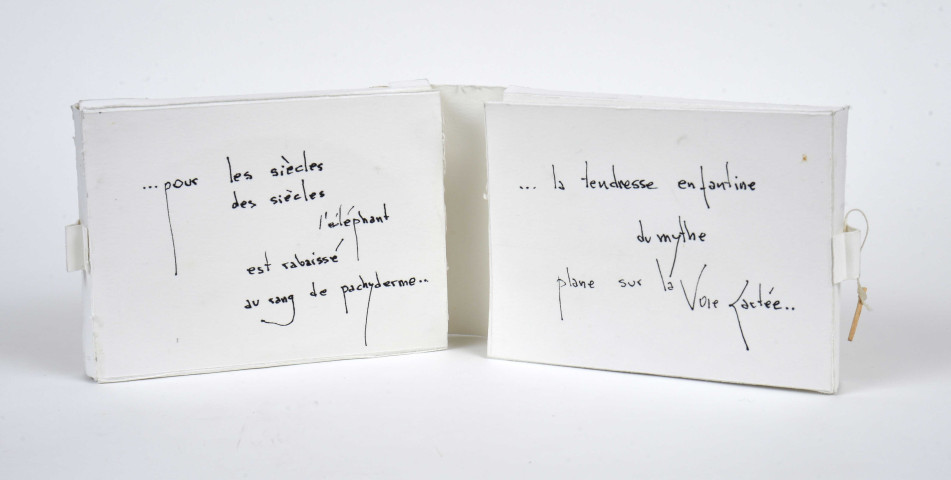 ...pour les siècles
des siècles
l'éléphant
est rabaissé
au rang de pachyderme..
... la tendresse enfantine
du mythe
plane sur la Voie Lactée..